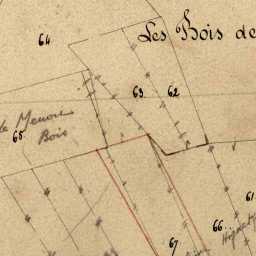 64
Les Bois de
63
62
de Menou
Bois
65
61
66
67